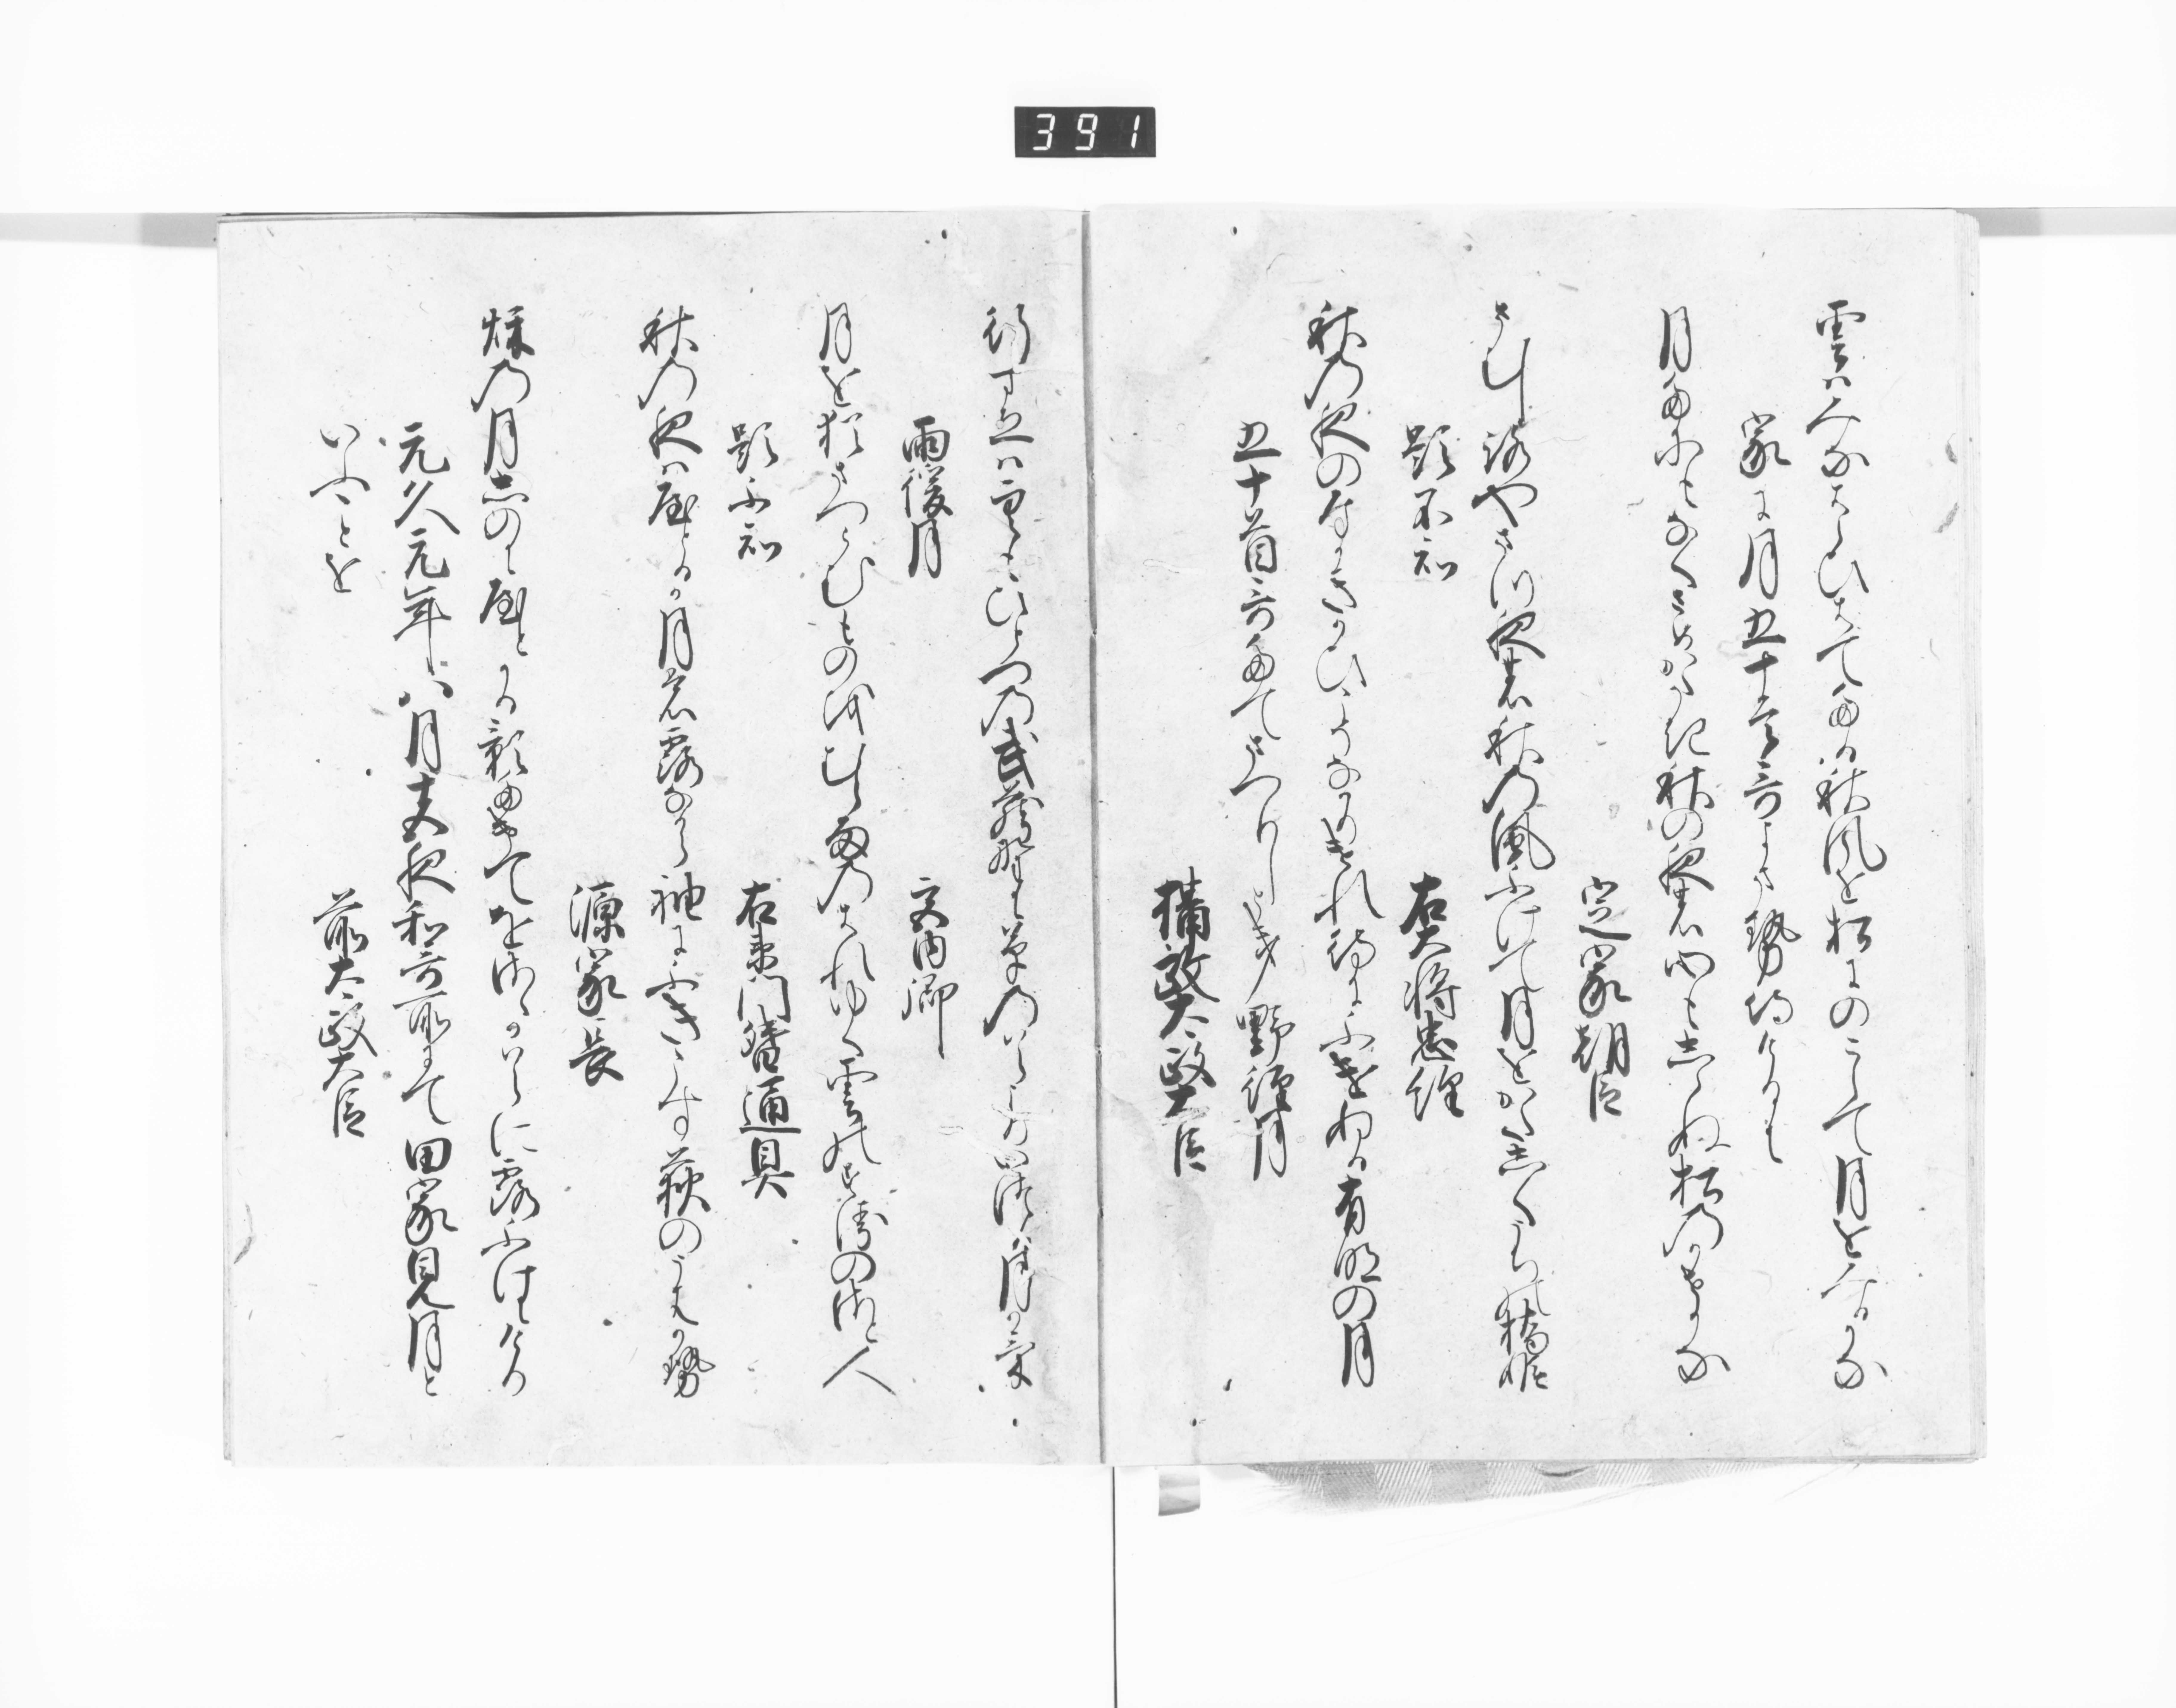 391
雲はみなはらひはてたる秋風を松にのこして月をみるかな
家に月五十首哥よませ侍ける時
月たにもなくさめかたき秋の夜の心もしらぬ松のかせかな
定家朝臣
さむしろやまつ夜の秋の風ふけて月をかたしくうちの橋姫
題不知
右大将忠経
秋の夜のなかきかひこそなかりけれ待にふけぬる有明の月
五十首哥たてまつりしとき野径月
摂政太政大臣
行すゑは空もひとつの武蔵野に草のはらよりいつる月かけ
雨後月
宮内卿
月を猶まつらむものかむら雨のはれゆく雲のすゑの里人
題不知
右衛門督通具
秋の夜はやとかる月も露なから袖にふきこす荻のうはかせ
源家長
秋の月しのにやとかる影たけてをさゝかはらに露ふけにけり
元久元年八月十五夜和哥所にて田家見月と
いふことを
前太政大臣